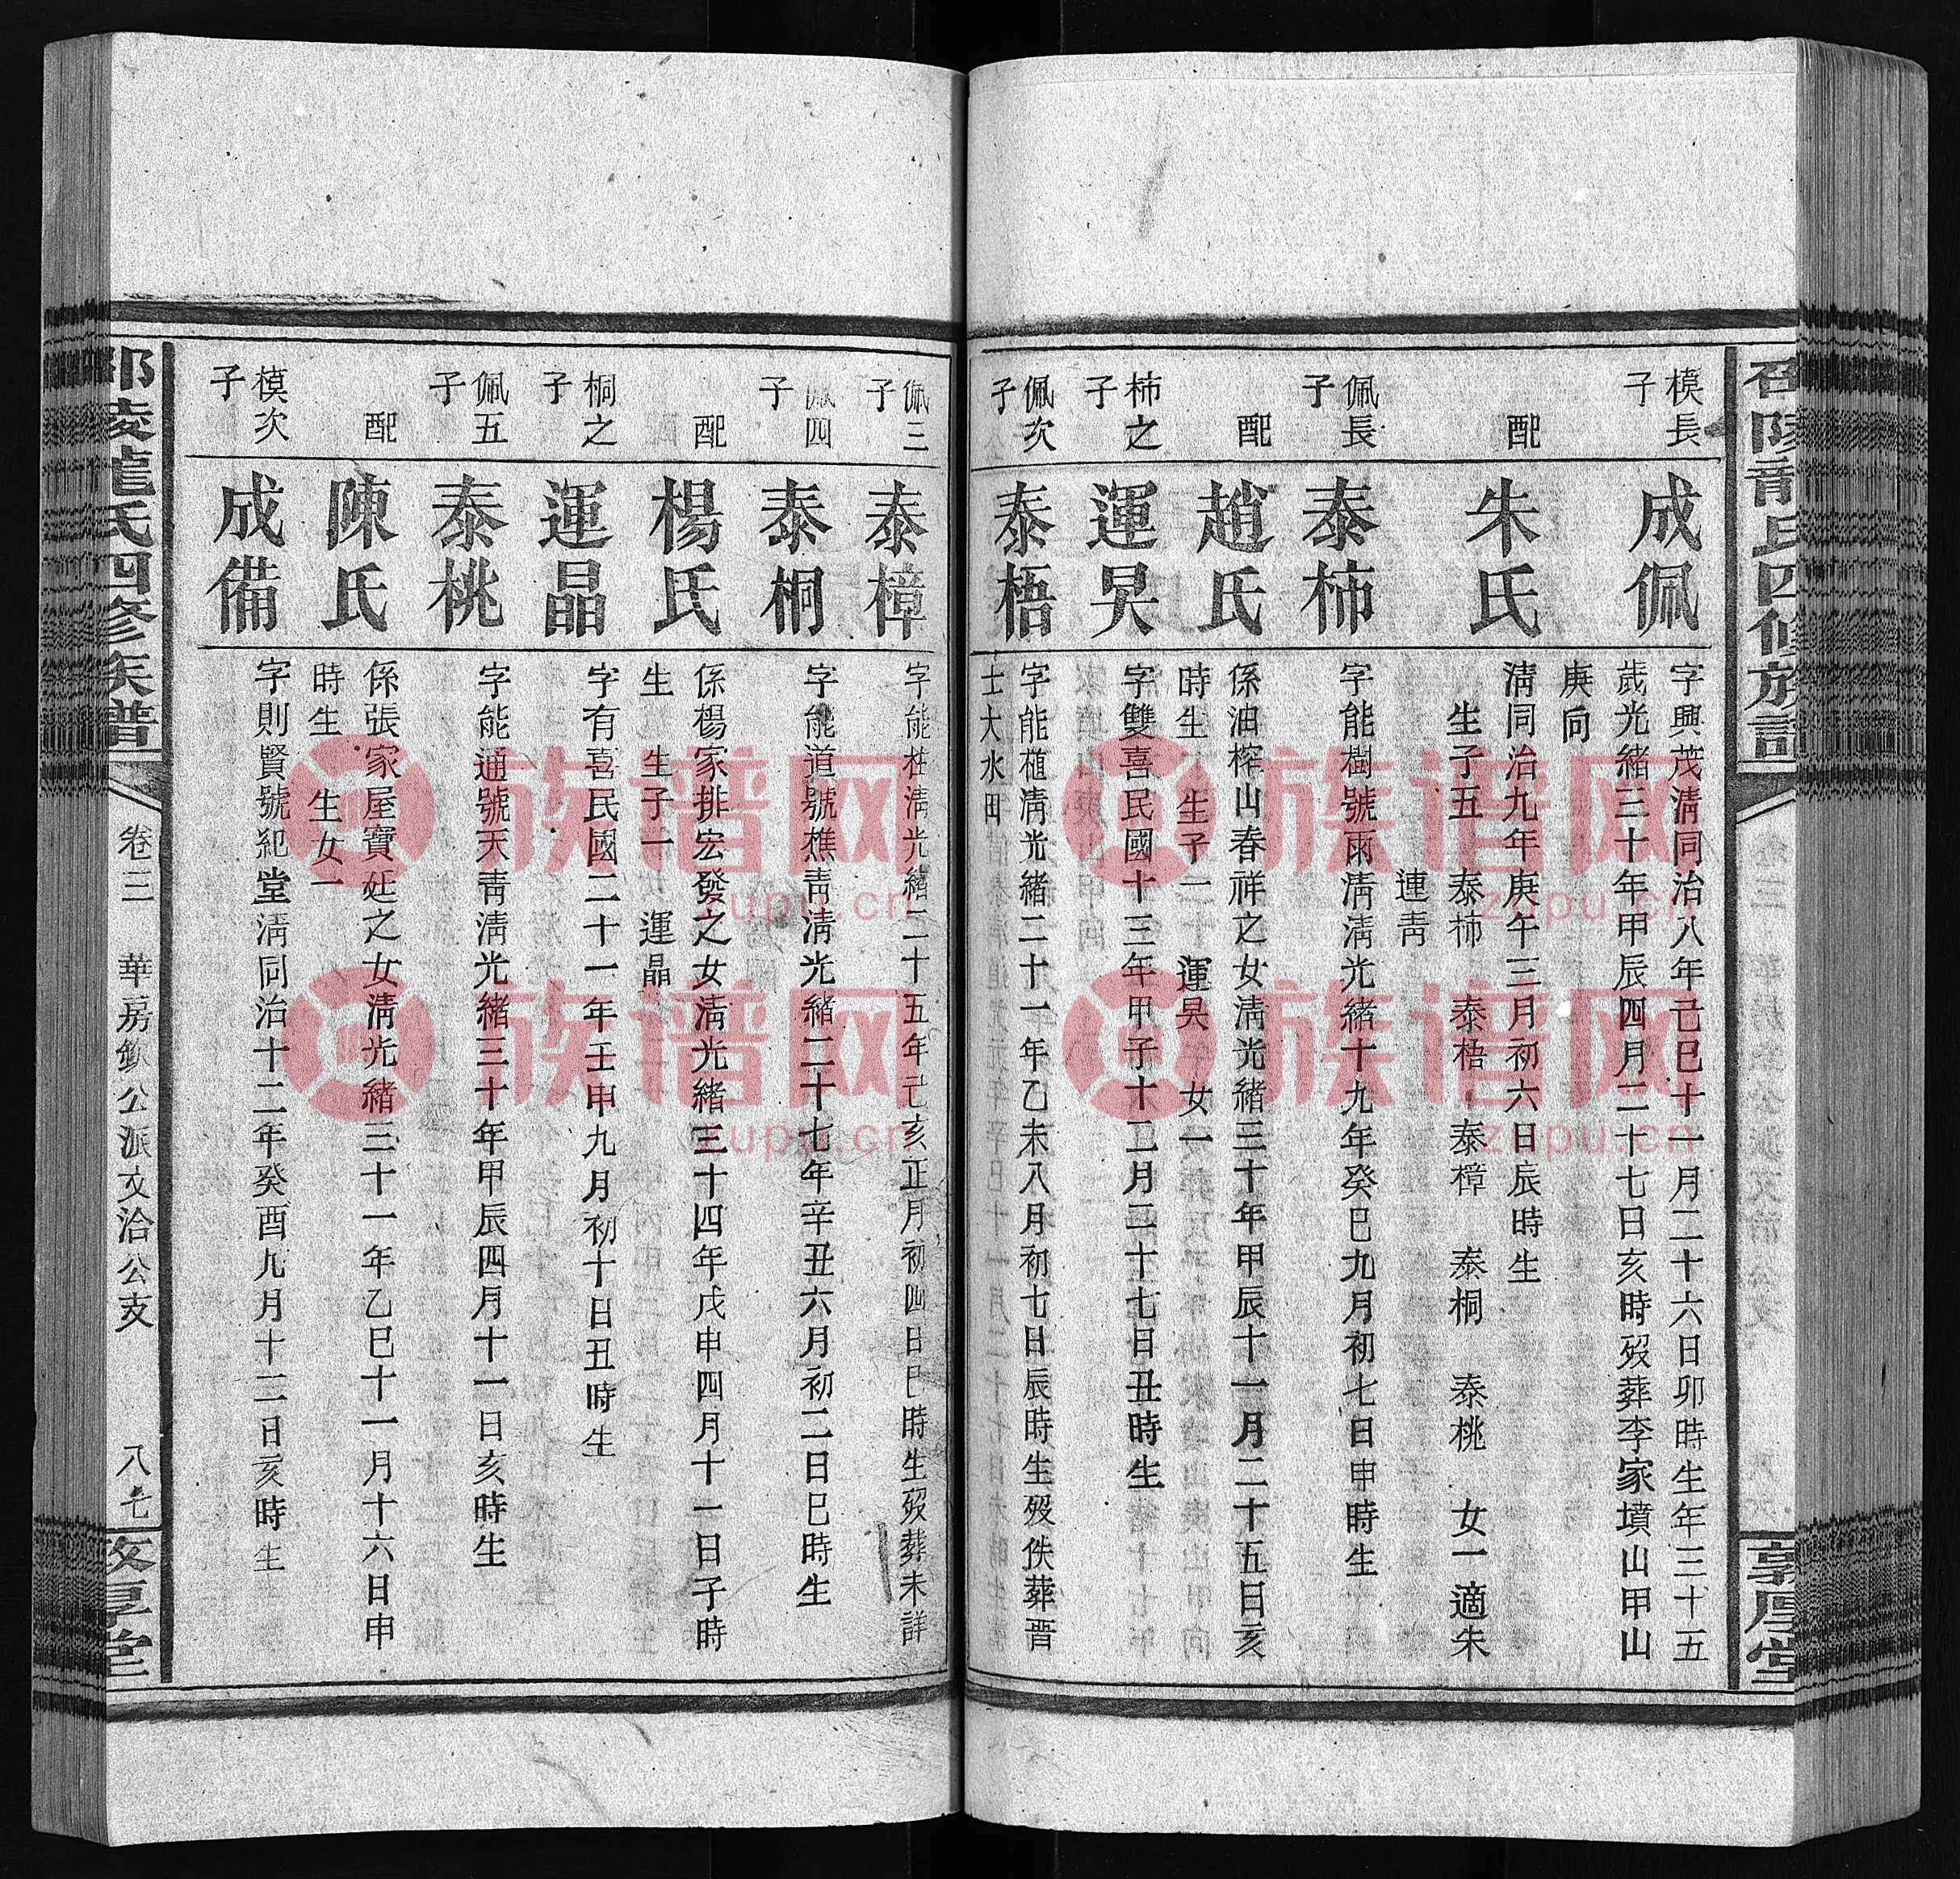 模長
子
成佩
字興茂淸同治八年己巳十一月二十六日卯時生年三十五
歲光緒三十年甲辰四月二十七日亥時歿葬李家墳山甲山
庚向
配
朱氏
淸同治九年庚午三月初六日辰時生
生子五 泰柿 泰梧 泰樟 泰桐 泰桃 女一適朱
連靑
佩長
子
泰柿
字能樹號雨淸淸光緒十九年癸巳九月初七日申時生
配
趙氏
係油榨山春祥之女淸光緒三十年甲辰十一月二十五日亥
時生 生子一 運昊 女一
柿之
子
運昊
字雙喜民國十三年甲子十二月二十七日丑時生
佩次
子
泰梧
字能植淸光緒二十一年乙未八月初七日辰時生歿佚葬晋
士大水田
佩三
子
泰樟
字能柱淸光緒二十五年己亥正月初四日巳時生歿葬未詳
佩四
子
泰桐
字能道號樵靑淸光緒二十七年辛丑六月初二日巳時生
配
楊氏
係楊家排宏發之女淸光緒三十四年戊申四月十一日子時
生 生子一 運晶
桐之
子
運晶
字有喜民國二十一年壬申九月初十日丑時生
佩五
子
泰桃
字能通號天靑淸光緒三十年甲辰四月十一日亥時生
配
陳氏
係張家屋寶廷之女淸光緒三十一年乙巳十一月十六日申
時生 生女一
模次
子
成備
字則賢號紀堂淸同治十二年癸酉九月十二日亥時生
邵陵龍氏四修族譜
卷三 華房欽公派文治公支
八七
敦厚堂
邵陵龍氏四修族譜
敦厚堂
族谱网
zupu.cn
族谱网
zupu.cn
族谱网
zupu.cn
族谱网
zupu.cn